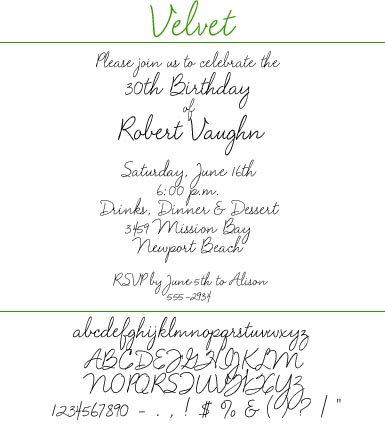 Velvet
Please join us to celebrate the
30th Birthday
of
Robert Vaughn
Saturday, June 16th
6:00 p.m.
Drinks, Dinner & Dessert
3459 Mission Bay
Newport Beach
RSVP by June 5th to Alison
555-2934
abcdefghijklmnopqrstuvwxyz
ABCDEFGHIJKLM
NOPQRSTUVWXYZ
1234567890 - . , ! $ % & ( ) ? / "